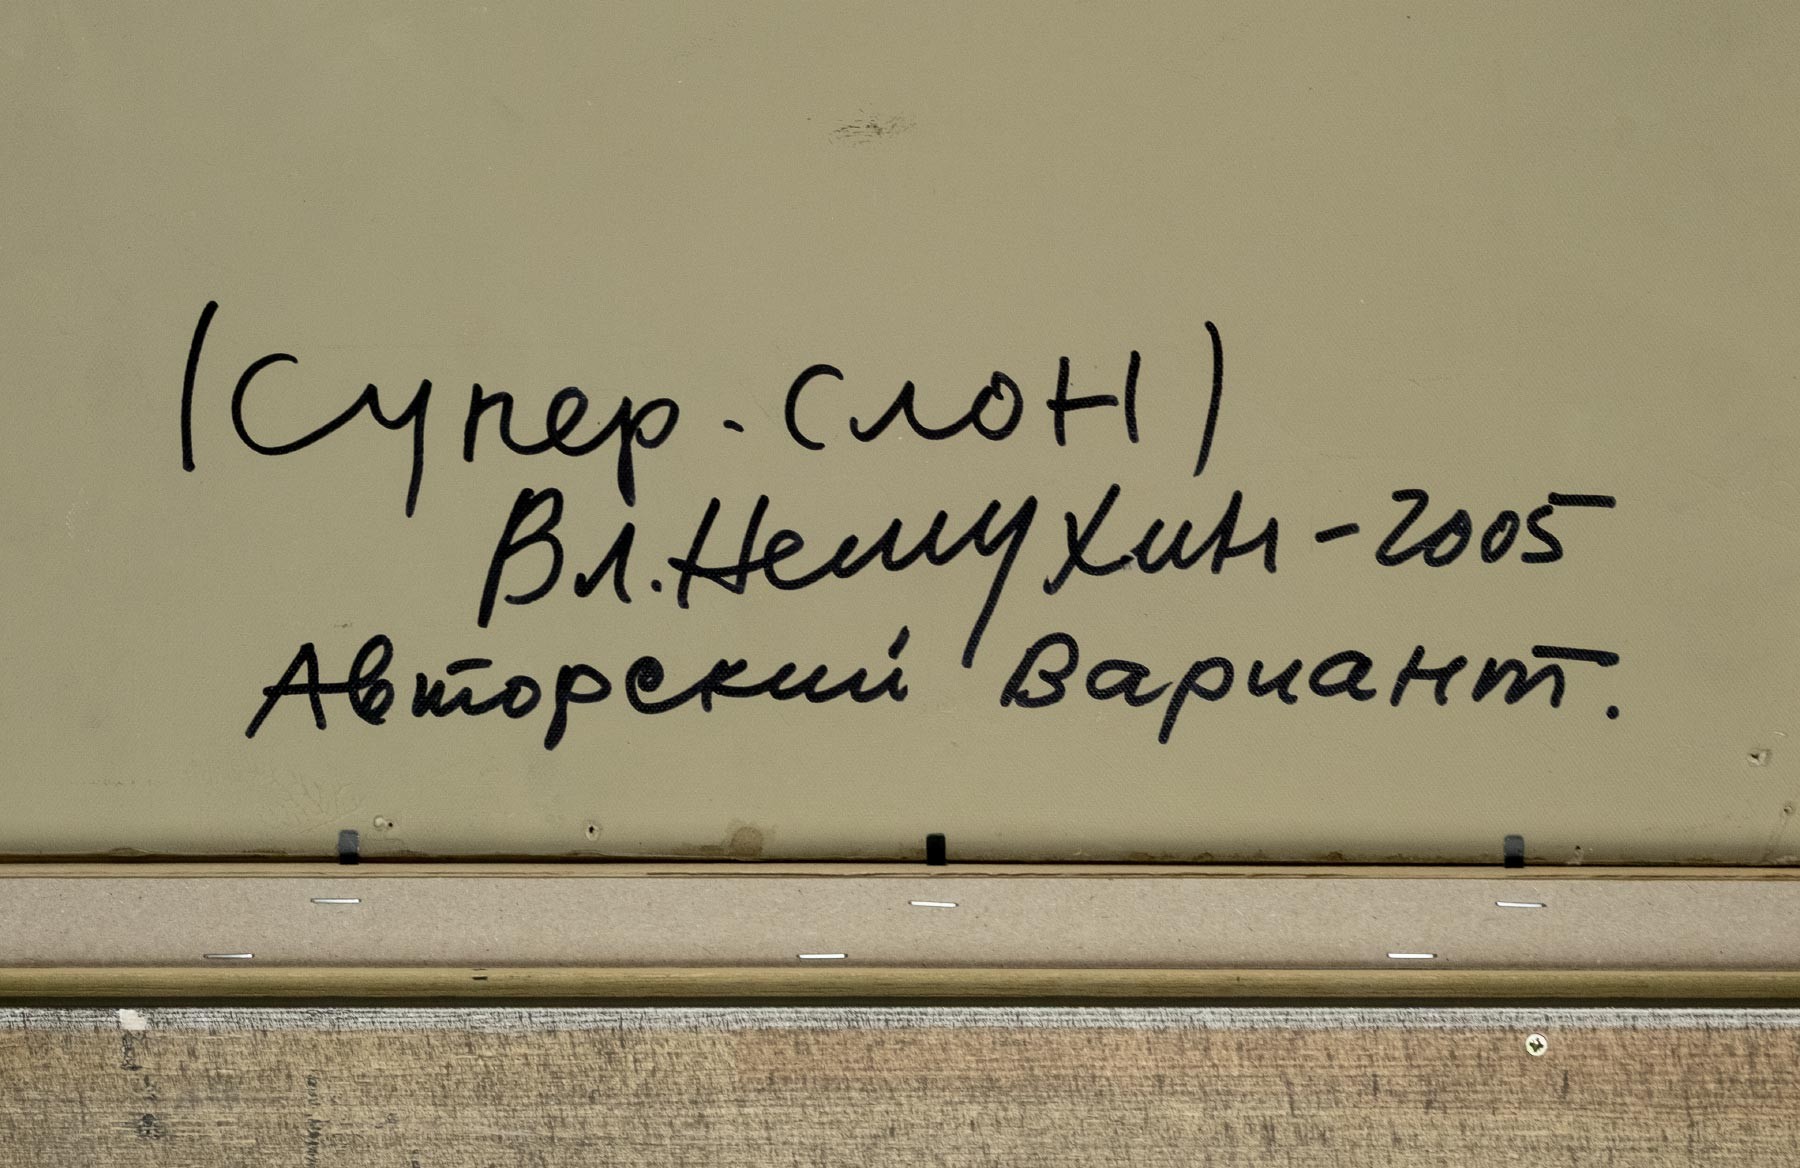 (Супер. слон)
Вл. Немухин - 2005
Авторский Вариант.